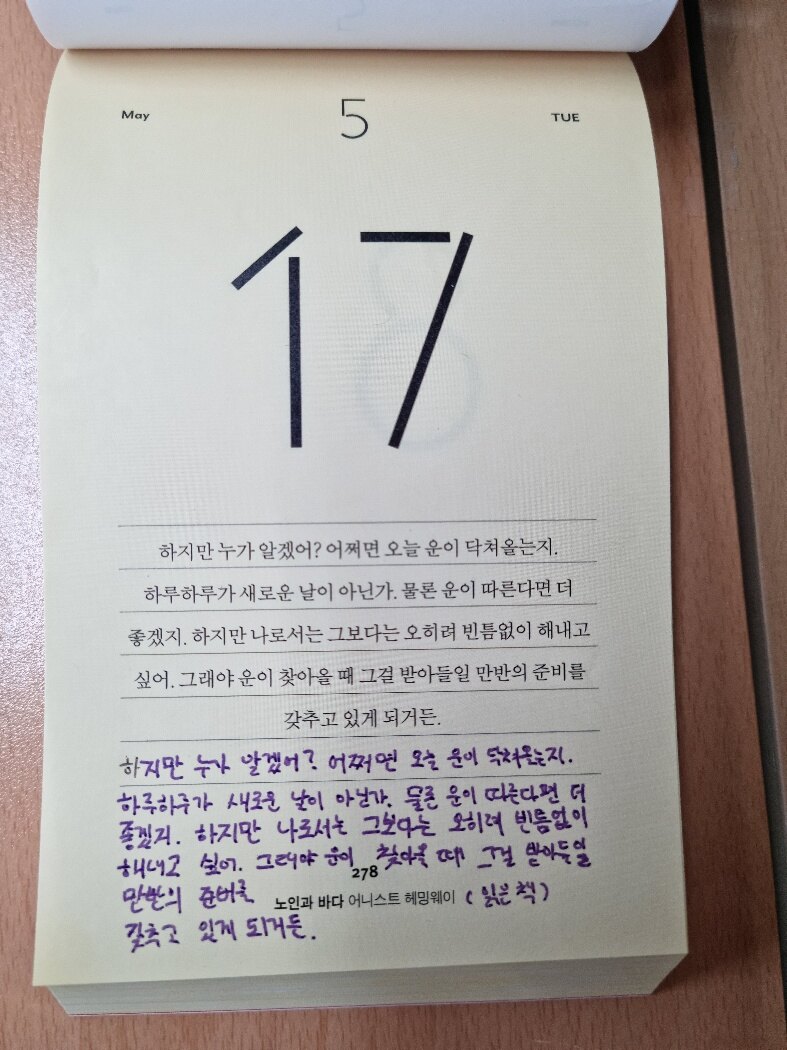 May 5 TUE
17
하지만 누가 알겠어? 어쩌면 오늘 운이 닥쳐올는지.
하루하루가 새로운 날이 아닌가. 물론 운이 따른다면 더
좋겠지. 하지만 나로서는 그보다는 오히려 빈틈없이 해내고
싶어. 그래야 운이 찾아올 때 그걸 받아들일 만반의 준비를
갖추고 있게 되거든.
하지만 누가 알겠어? 어쩌면 오늘 운이 닥쳐올는지.
하루하루가 새로운 날이 아닌가. 물론 운이 따른다면 더
좋겠지. 하지만 나로서는 그보다는 오히려 빈틈없이
해내고 싶어. 그래야 운이 찾아올 때 그걸 받아들일
278
만반의 준비를
노인과 바다 어니스트 헤밍웨이 (읽은 책)
갖추고 있게 되거든.